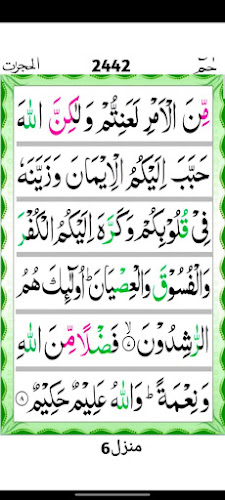 الحجرات 2442 حٰمٓ
مِّنَ الْاَمْرِ لَعَنِتُّمْ وَلٰكِنَّ اللّٰهَ
حَبَّبَ اِلَيْكُمُ الْاِيْمَانَ وَزَيَّنَهٗ
فِيْ قُلُوْبِكُمْ وَكَرَّهَ اِلَيْكُمُ الْكُفْرَ
وَالْفُسُوْقَ وَالْعِصْيَانَ ؕ اُولٰٓئِكَ هُمُ
الرّٰشِدُوْنَ ۙ۷ فَضْلًا مِّنَ اللّٰهِ
وَنِعْمَةً ؕ وَاللّٰهُ عَلِيْمٌ حَكِيْمٌ ۸
منزل6